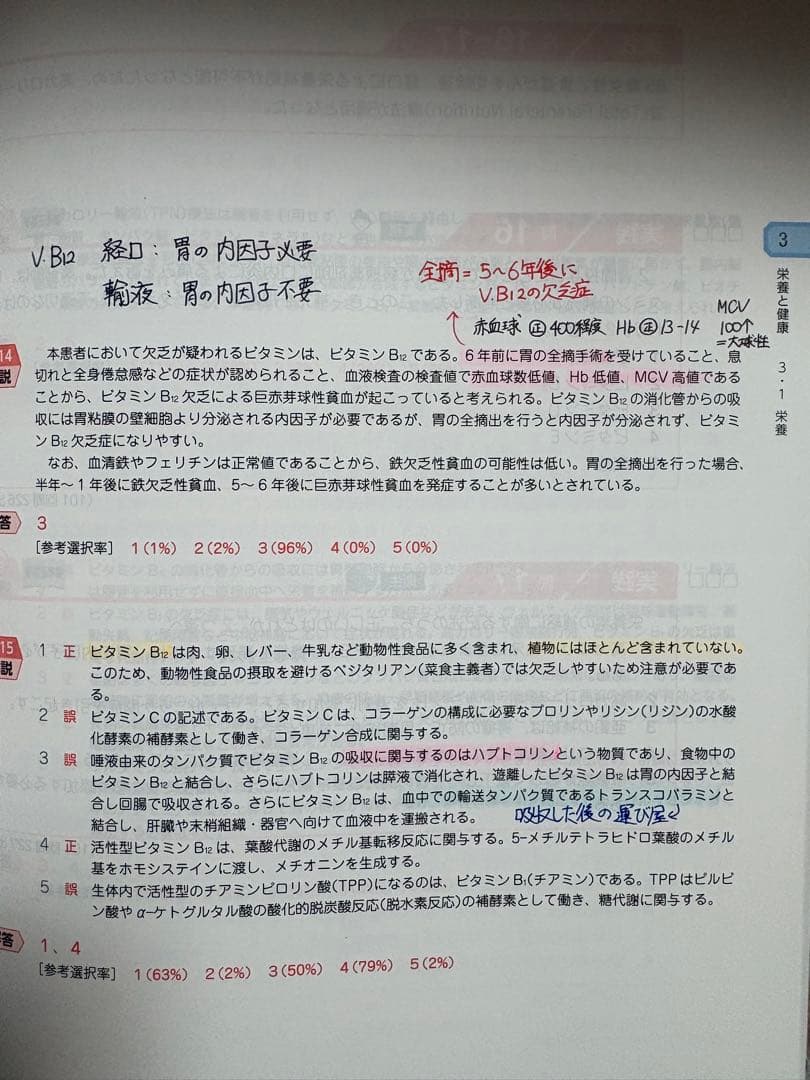 V.B12 経口：胃の内因子必要
輸液：胃の内因子不要
全摘＝5〜6年後に
V.B12の欠乏症
赤血球 正 400程度 Hb 正 13-14
MCV
100↑
=大球性
3
栄養と健康
3・1 栄養
14
説
本患者において欠乏が疑われるビタミンは、ビタミンB₁₂である。6年前に胃の全摘手術を受けていること、息
切れと全身倦怠感などの症状が認められること、血液検査の検査値で赤血球数低値、Hb低値、MCV高値である
ことから、ビタミンB₁₂欠乏による巨赤芽球性貧血が起こっていると考えられる。ビタミンB₁₂の消化管からの吸
収には胃粘膜の壁細胞より分泌される内因子が必要であるが、胃の全摘出を行うと内因子が分泌されず、ビタミ
ンB₁₂欠乏症になりやすい。
なお、血清鉄やフェリチンは正常値であることから、鉄欠乏性貧血の可能性は低い。胃の全摘出を行った場合、
半年〜1年後に鉄欠乏性貧血、5〜6年後に巨赤芽球性貧血を発症することが多いとされている。
答 3
［参考選択率］ 1（1%） 2（2%） 3（96%） 4（0%） 5（0%）
15
説
1 正 ビタミンB₁₂は肉、卵、レバー、牛乳など動物性食品に多く含まれ、植物にはほとんど含まれていない。
このため、動物性食品の摂取を避けるベジタリアン（菜食主義者）では欠乏しやすいため注意が必要であ
る。
2 誤 ビタミンCの記述である。ビタミンCは、コラーゲンの構成に必要なプロリンやリシン（リジン）の水酸
化酵素の補酵素として働き、コラーゲン合成に関与する。
3 誤 唾液由来のタンパク質でビタミンB₁₂の吸収に関与するのはハプトコリンという物質であり、食物中の
ビタミンB₁₂と結合し、さらにハプトコリンは膵液で消化され、遊離したビタミンB₁₂は胃の内因子と結
合し回腸で吸収される。さらにビタミンB₁₂は、血中での輸送タンパク質であるトランスコバラミンと
結合し、肝臓や末梢組織・器官へ向けて血液中を運搬される。
吸収した後の運び屋
4 正 活性型ビタミンB₁₂は、葉酸代謝のメチル基転移反応に関与する。5-メチルテトラヒドロ葉酸のメチル
基をホモシステインに渡し、メチオニンを生成する。
5 誤 生体内で活性型のチアミンピロリン酸（TPP）になるのは、ビタミンB₁（チアミン）である。TPPはピルビ
ン酸やα-ケトグルタル酸の酸化的脱炭酸反応（脱水素反応）の補酵素として働き、糖代謝に関与する。
解答 1、4
［参考選択率］ 1（63%） 2（2%） 3（50%） 4（79%） 5（2%）